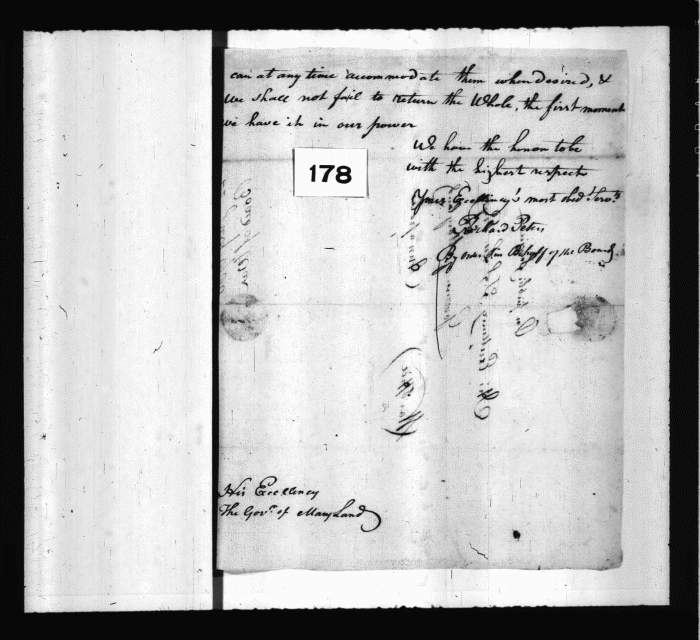 can at any time accommodate them when desired, &
we shall not fail to return the Whole, the first moment
we have it in our power
We have the honor to be
with the highest respect
Your Excellency's most obed.t Serv.ts
Richard Peters
By order in Behalf of the Board
178
War Office
Board of War
His Excellency
The Gov.r of MaryLand